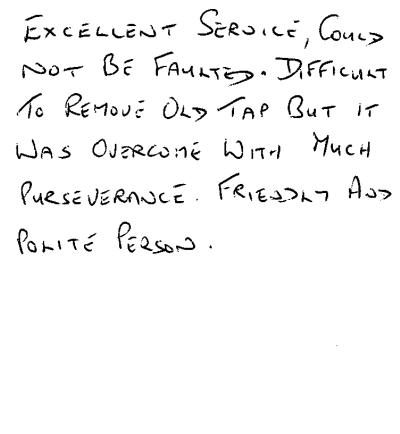 EXCELLENT SERVICE, COULD
NOT BE FAULTED. DIFFICULT
TO REMOVE OLD TAP BUT IT
WAS OVERCOME WITH MUCH
PURSEVERANCE. FRIENDLY AND
POLITE PERSON.